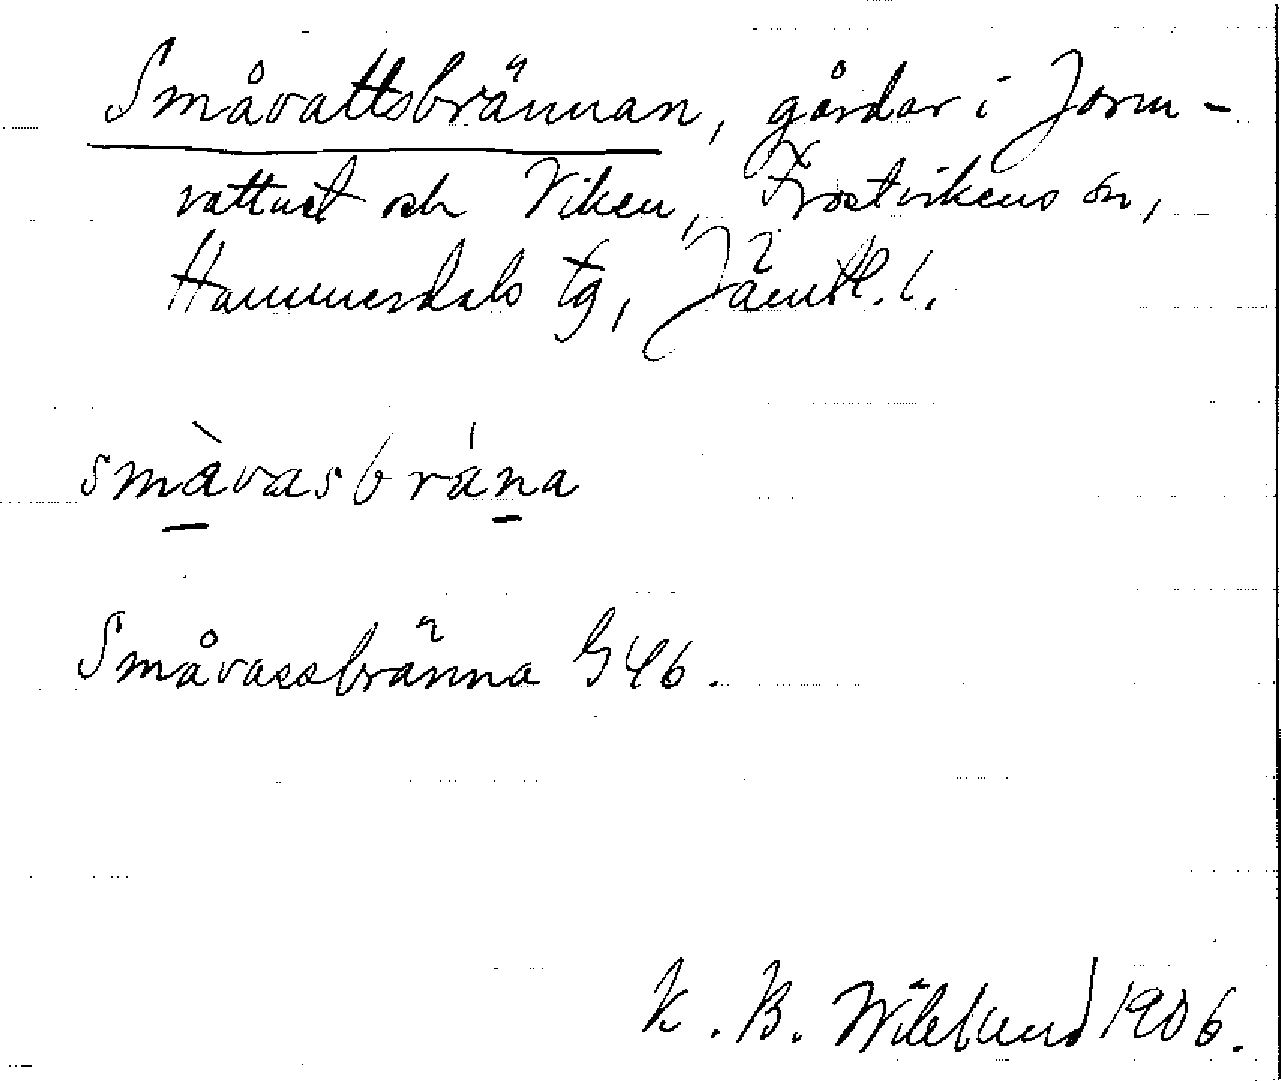 Småvattsbrännan, gårdar i Jorm-
vattnet och Viken, Frostvikens sn,
Hammerdals tg, Jämtl. l.
småvasbräna
Småvassbränna G46.
K. B. Wiklund 1906.